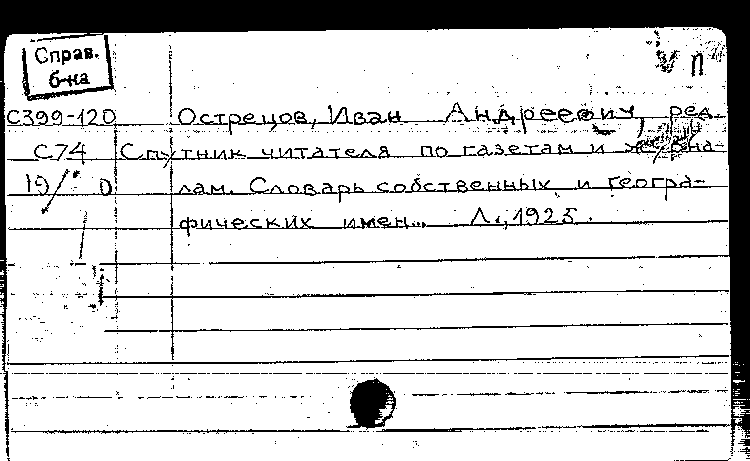 Справ.
б-ка
V П
С399-120 Острецов, Иван Андреевич, ред.
С74 Спутник читателя по газетам и журна-
лам. Словарь собственных и геогра-
фических имен... Л., 1925.